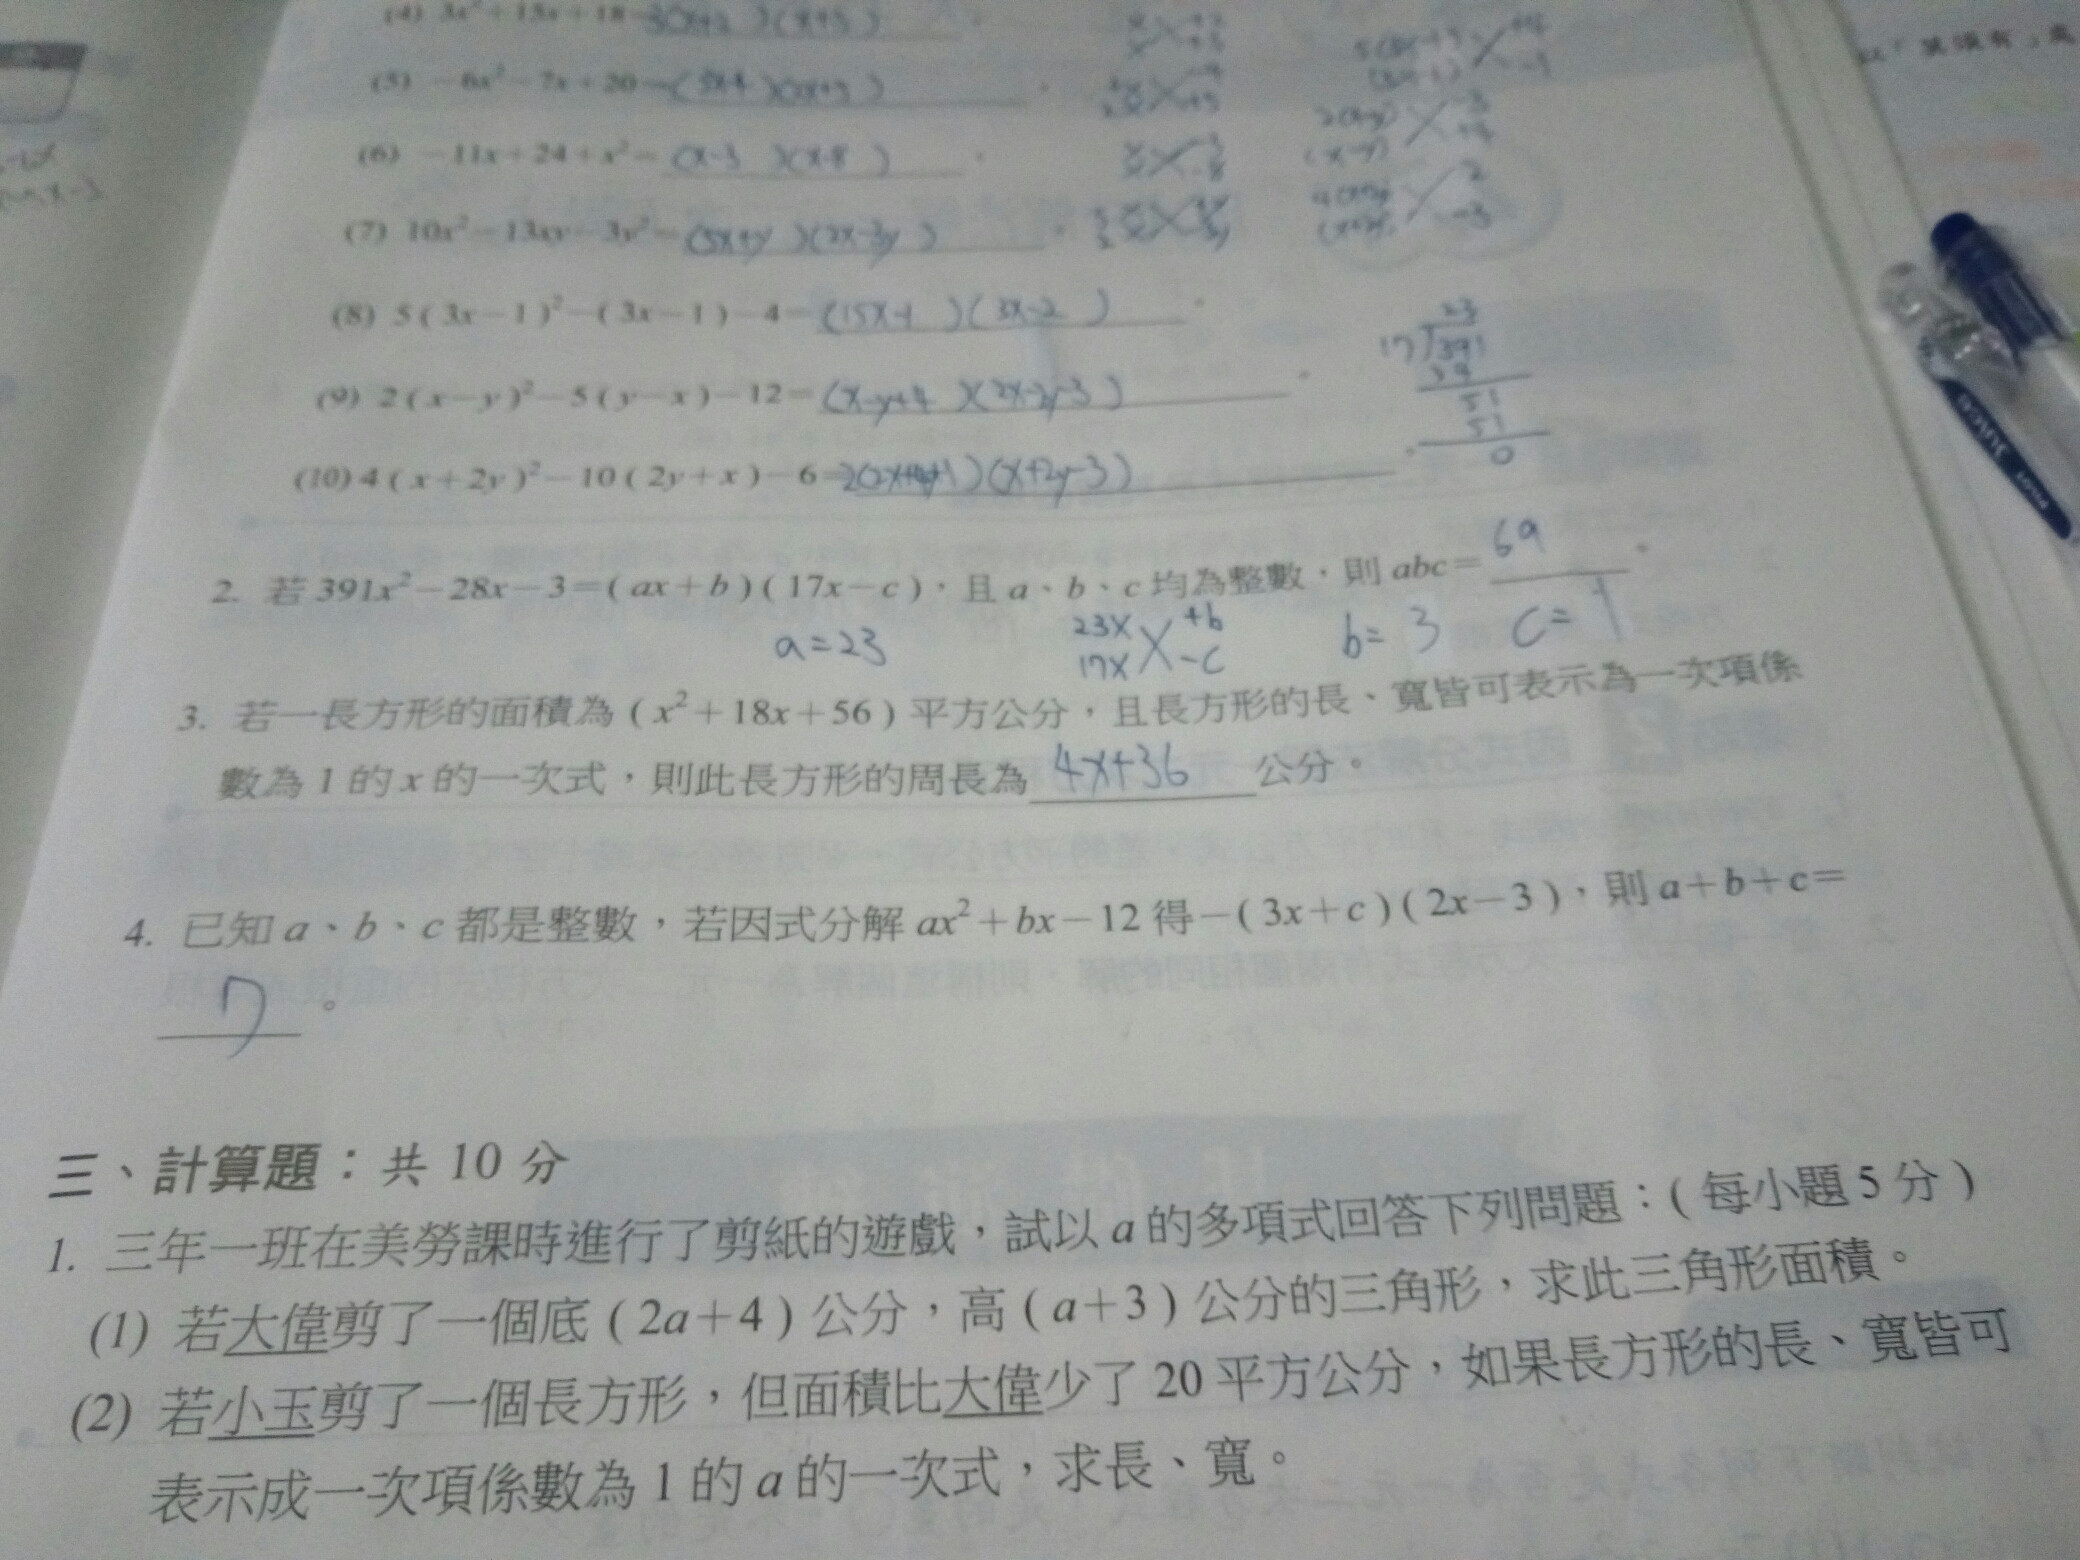 (4) 3x²+15x+18=3(x+2)(x+3)
(5) −6x²−7x+20=
(6) −11x+24+x²=(x-3)(x-8)
(7) 10x²−13xy−3y²=(5x+y)(2x-3y)
(8) 5(3x−1)²−(3x−1)−4=(15x-1)(3x-2)。
(9) 2(x−y)²−5(y−x)−12=(x-y+4)(2x-2y-3)。
(10) 4(x+2y)²−10(2y+x)−6=2(2x+4y+1)(x+2y-3)。
23
17)391
51
51
0
2. 若 391x²−28x−3=(ax+b)(17x−c),且 a、b、c 均為整數,則 abc=69。
a=23 23x +b b=3 c=1
17x -c
3. 若一長方形的面積為(x²+18x+56)平方公分,且長方形的長、寬皆可表示為一次項係
數為 1 的 x 的一次式,則此長方形的周長為4x+36公分。
4. 已知 a、b、c 都是整數,若因式分解 ax²+bx−12 得−(3x+c)(2x−3),則 a+b+c=
7。
三、計算題:共 10 分
1. 三年一班在美勞課時進行了剪紙的遊戲,試以 a 的多項式回答下列問題:(每小題 5 分)
(1) 若大偉剪了一個底(2a+4)公分,高(a+3)公分的三角形,求此三角形面積。
(2) 若小玉剪了一個長方形,但面積比大偉少了 20 平方公分,如果長方形的長、寬皆可
表示成一次項係數為 1 的 a 的一次式,求長、寬。